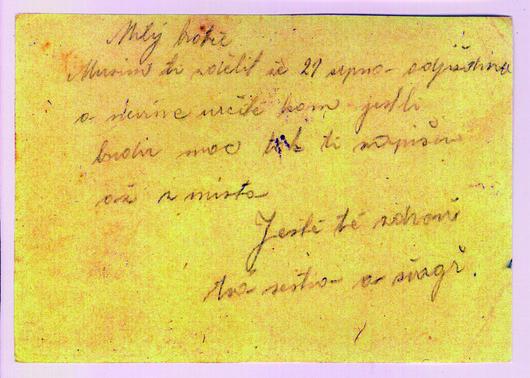 Milý hošíč
Musím ti sdělit že 21 srpna odjíždíme
a nevíme určitě kam jestli
budu moc tak ti napíšu
až z místa
Jestě tě zdraví
tvá sestra a švagr.